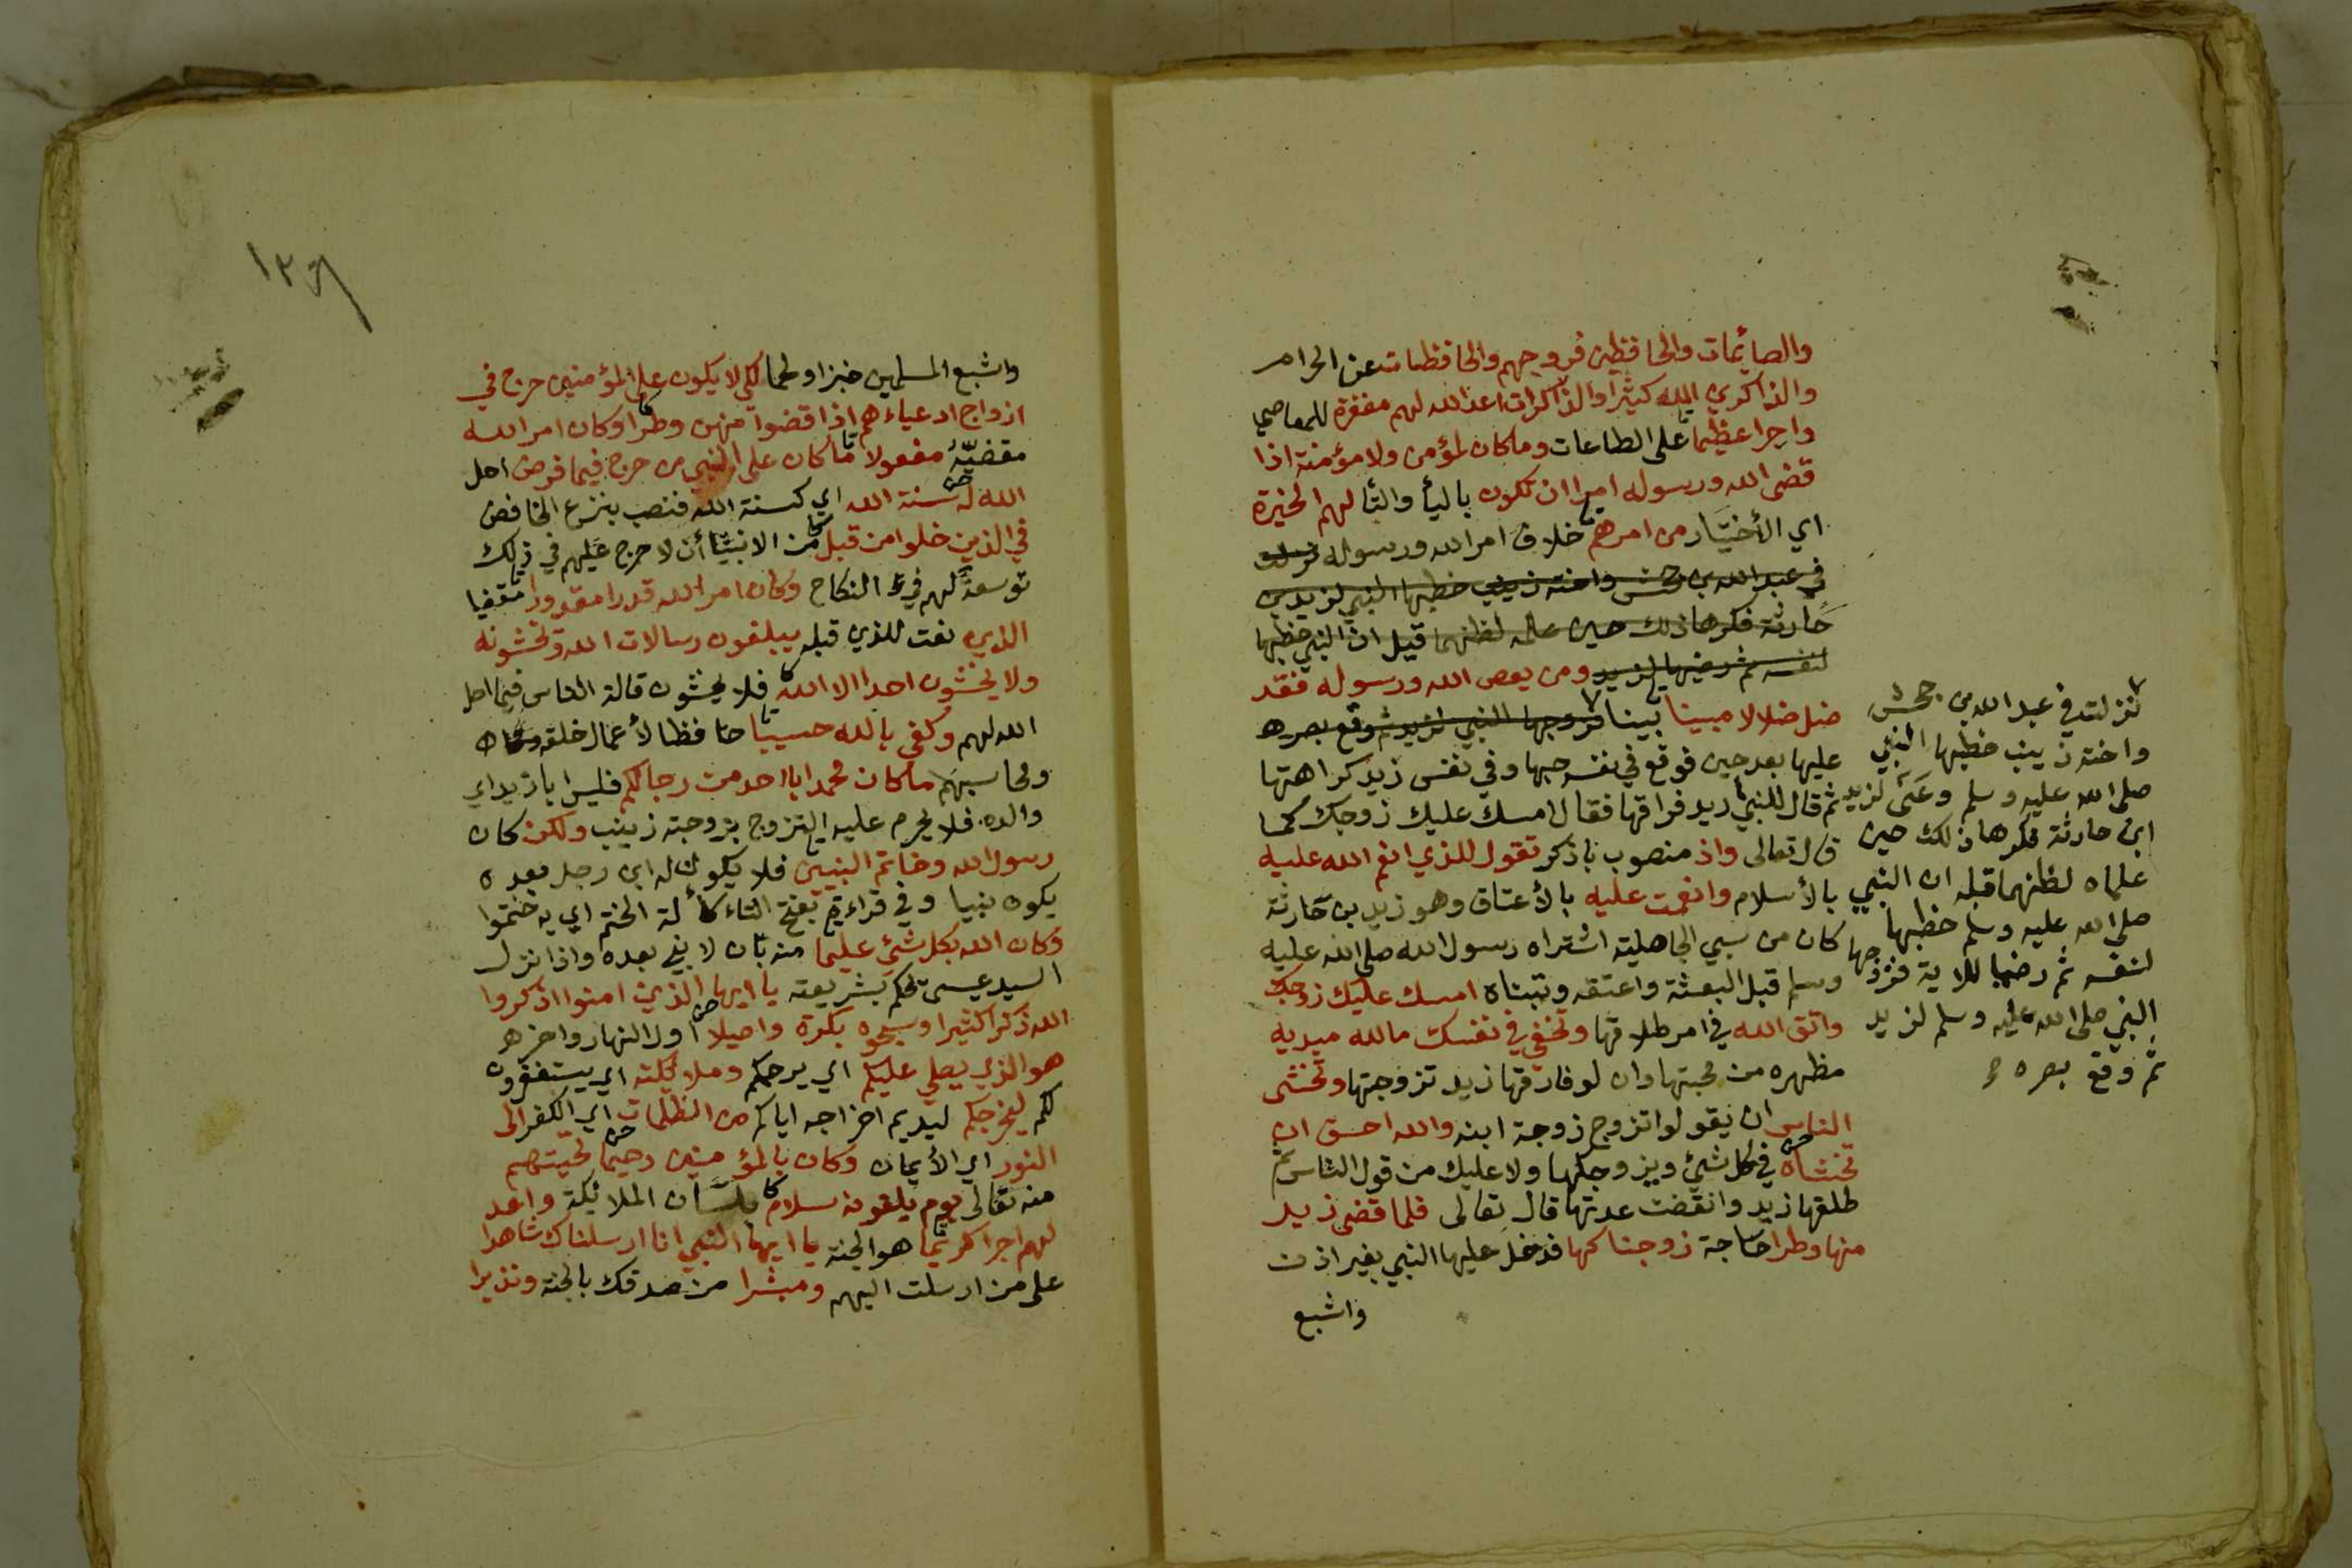 والصائمات والحافظين فروجهم والحافظات عن الحرام
والذاكرين الله كثيرا والذاكرات اعد الله لهم مغفرة للمعاصي
واجرا عظيما على الطاعات وما كان لمؤمن ولا مؤمنة اذا
قضى الله ورسوله امرا ان تكون باليا والتا لهم الخيرة
اي الأختيار من امرهم خلاف امر الله ورسوله نزلت
في عبد الله بن جحش واخته زينب خطبها النبي لزيد بن
حارثة فكرها ذلك حين علمه لظنهما قبل ان النبي خطبها
لنفسه ثم رضيها لزيد ومن يعص الله ورسوله فقد
ضل ضلالا مبينا بينا فزوجها النبي لزيد ثم وقع بصره
عليها بعد حين فوقع في نفسه حبها وفي نفس زيد كراهتها
ثم قال للنبي اريد فراقها فقال امسك عليك زوجك كما
قال تعالى واذ منصوب باذكر تقول للذي انعم الله عليه
بالأسلام وانعمت عليه بالأعتاق وهو زيد بن حارثة
كان من سبي الجاهلية اشتراه رسول الله صلى الله عليه
وسلم قبل البعثة واعتقه وتبناه امسك عليك زوجك
واتق الله في امر طلاقها وتخفي في نفسك ما الله مبديه
مظهره من محبتها وان لو فارقها زيد تزوجتها وتخشى
الناس ان يقولوا تزوج زوجة ابنه والله احق ان
تخشاه في كل شئ ويزوجكها ولا عليك من قول الناس ثم
طلقها زيد وانقضت عدتها قال تعالى فلما قضى زيد
منها وطرا حاجة زوجناكها فدخل عليها النبي بغير اذن
واشبع
نزلت في عبد الله بن جحش
واخته زينب خطبها النبي
صلى الله عليه وسلم وعنى لزيد
ابن حارثة فكرها ذلك حين
علماه لظنهما قبله ان النبي
صلى الله عليه وسلم خطبها
لنفسه ثم رضيا للاية فزوجها
النبي صلى الله عليه وسلم لزيد
ثم وقع بصره
واشبع المسلمين خبزا ولحما لكي لا يكون على المؤمنين حرج في
ازواج ادعياءهم اذا قضوا منهن وطرا وكان امر الله
مقضيه مفعولا ما كان على النبي من حرج فيما فرض احل
الله له سنة الله اي كسنة الله فنصب بنزع الخافض
في الذين خلوا من قبل من الانبيا أن لا حرج عليهم في ذلك
توسعة لهم في النكاح وكان امر الله قدرا مقدورا مقضيا
الذين نعت للذين قبله يبلغون رسالات الله ويخشونه
ولا يخشون احدا الا الله فلا يخشون قالة الناس فيما احل
الله لهم وكفى بالله حسيبا حافظا لأعمال خلقه
ومحاسبهم ما كان محمد ابا احد من رجالكم فليس ابا زيد اي
والده فلا يحرم عليه التزوج بزوجته زينب ولكن كان
رسول الله وخاتم النبيين فلا يكون له ابن رجل بعده
يكون نبيا وفي قراءة بفتح التاء كألة الختم اي به ختموا
وكان الله بكل شئ عليما منه بان لا نبي بعده واذا نزل
السيد عيسى يحكم بشريعته يا ايها الذين امنوا اذكروا
الله ذكرا كثيرا وسبحوه بكرة واصيلا اول النهار واخره
هو الذي يصلي عليكم اي يرحمكم وملائكته اي يستغفرون
لكم ليخرجكم ليديم اخراجه اياكم من الظلمات اي الكفر الى
النور اي الأيمان وكان بالمؤمنين رحيما تحيتهم
منه تعالى يوم يلقونه سلام بلسان الملائكة واعد
لهم اجرا كريما هو الجنة يا ايها النبي انا ارسلناك شاهدا
على من ارسلت اليهم ومبشرا من صدقك بالجنة ونذيرا